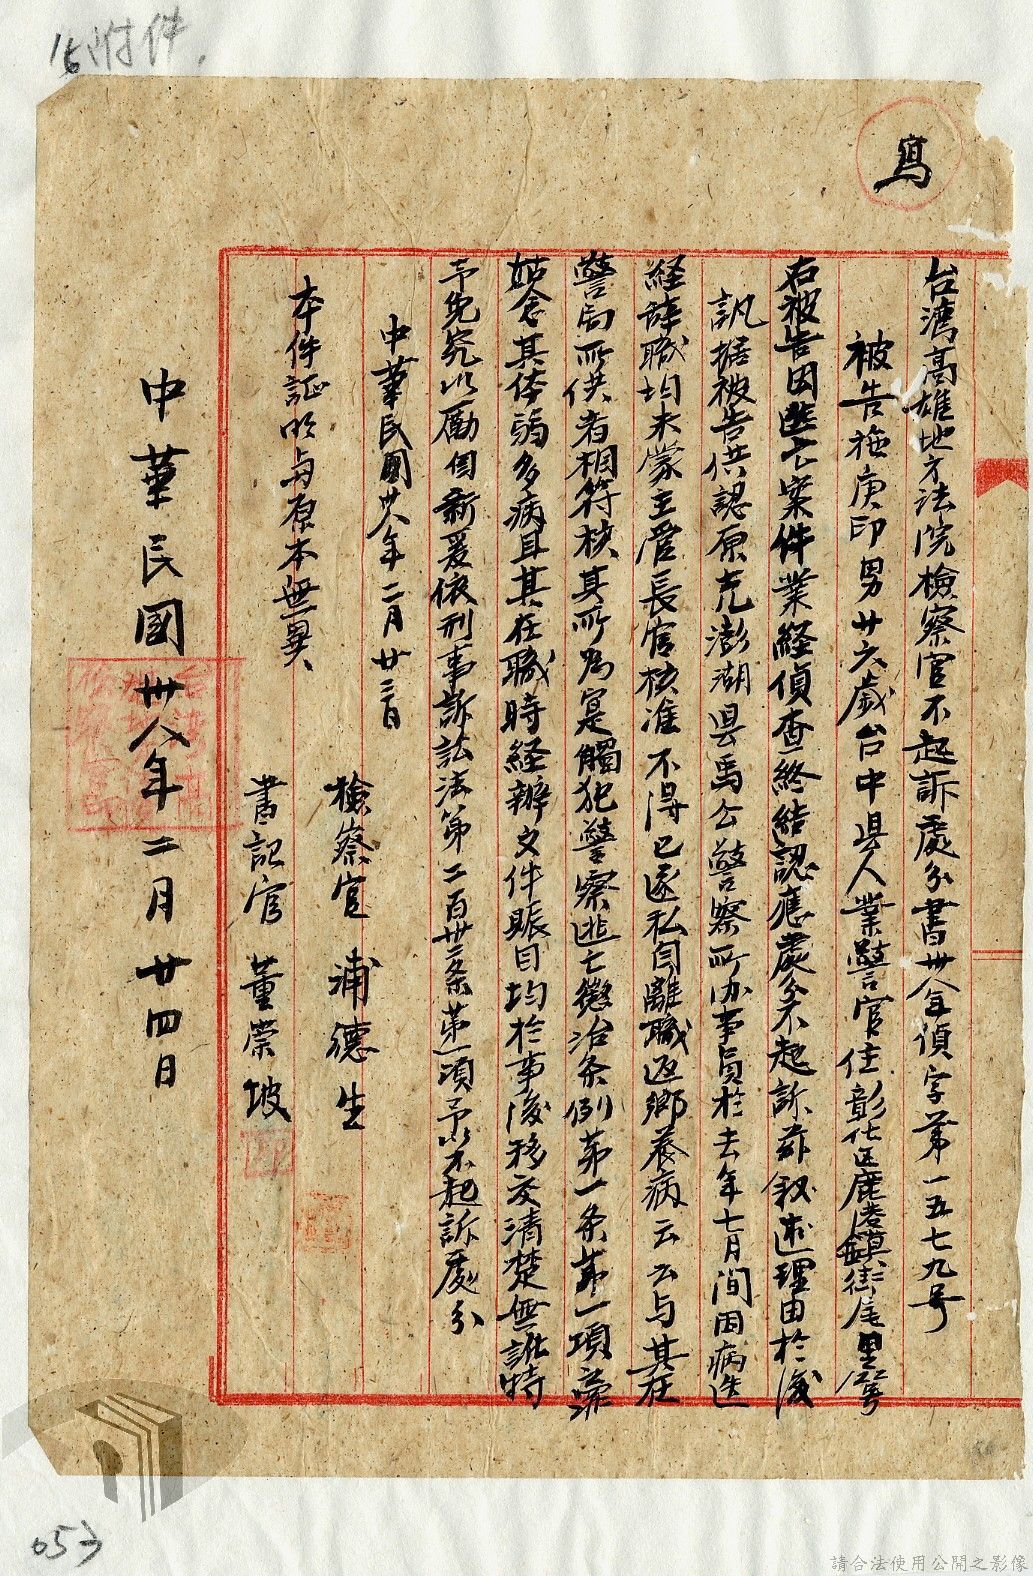 附件.
寫
台灣高雄地方法院檢察官不起訴處分書卅八年偵字第一五七九号
被告施庚印男廿六歲台中県人業警官住彰化区鹿港鎮街尾里
右被告因逃亡案件業経偵查終結認應處分不起訴茲叙述理由於後
訊据被告供認原充澎湖县馬公警察所办事員於去年七月间因病迭
経辞職均未蒙主管長官核准不得已遂私自離職返鄉养病云云与其在
警局所供者相符核其所為寔觸犯警察逃亡懲治条例第一条第一項
姑念其体弱多病且其在職時経辦文件賬目均於事後移交清楚無訛特
予免究以勵自新爰依刑事訴訟法第二百卅二条第一項予以不起訴處分
中華民國卅八年二月廿三日
檢察官 浦德生
本件証明与原本無異
書記官 董榮坡
中華民國卅八年二月廿四日
053
請合法使用公開之影像